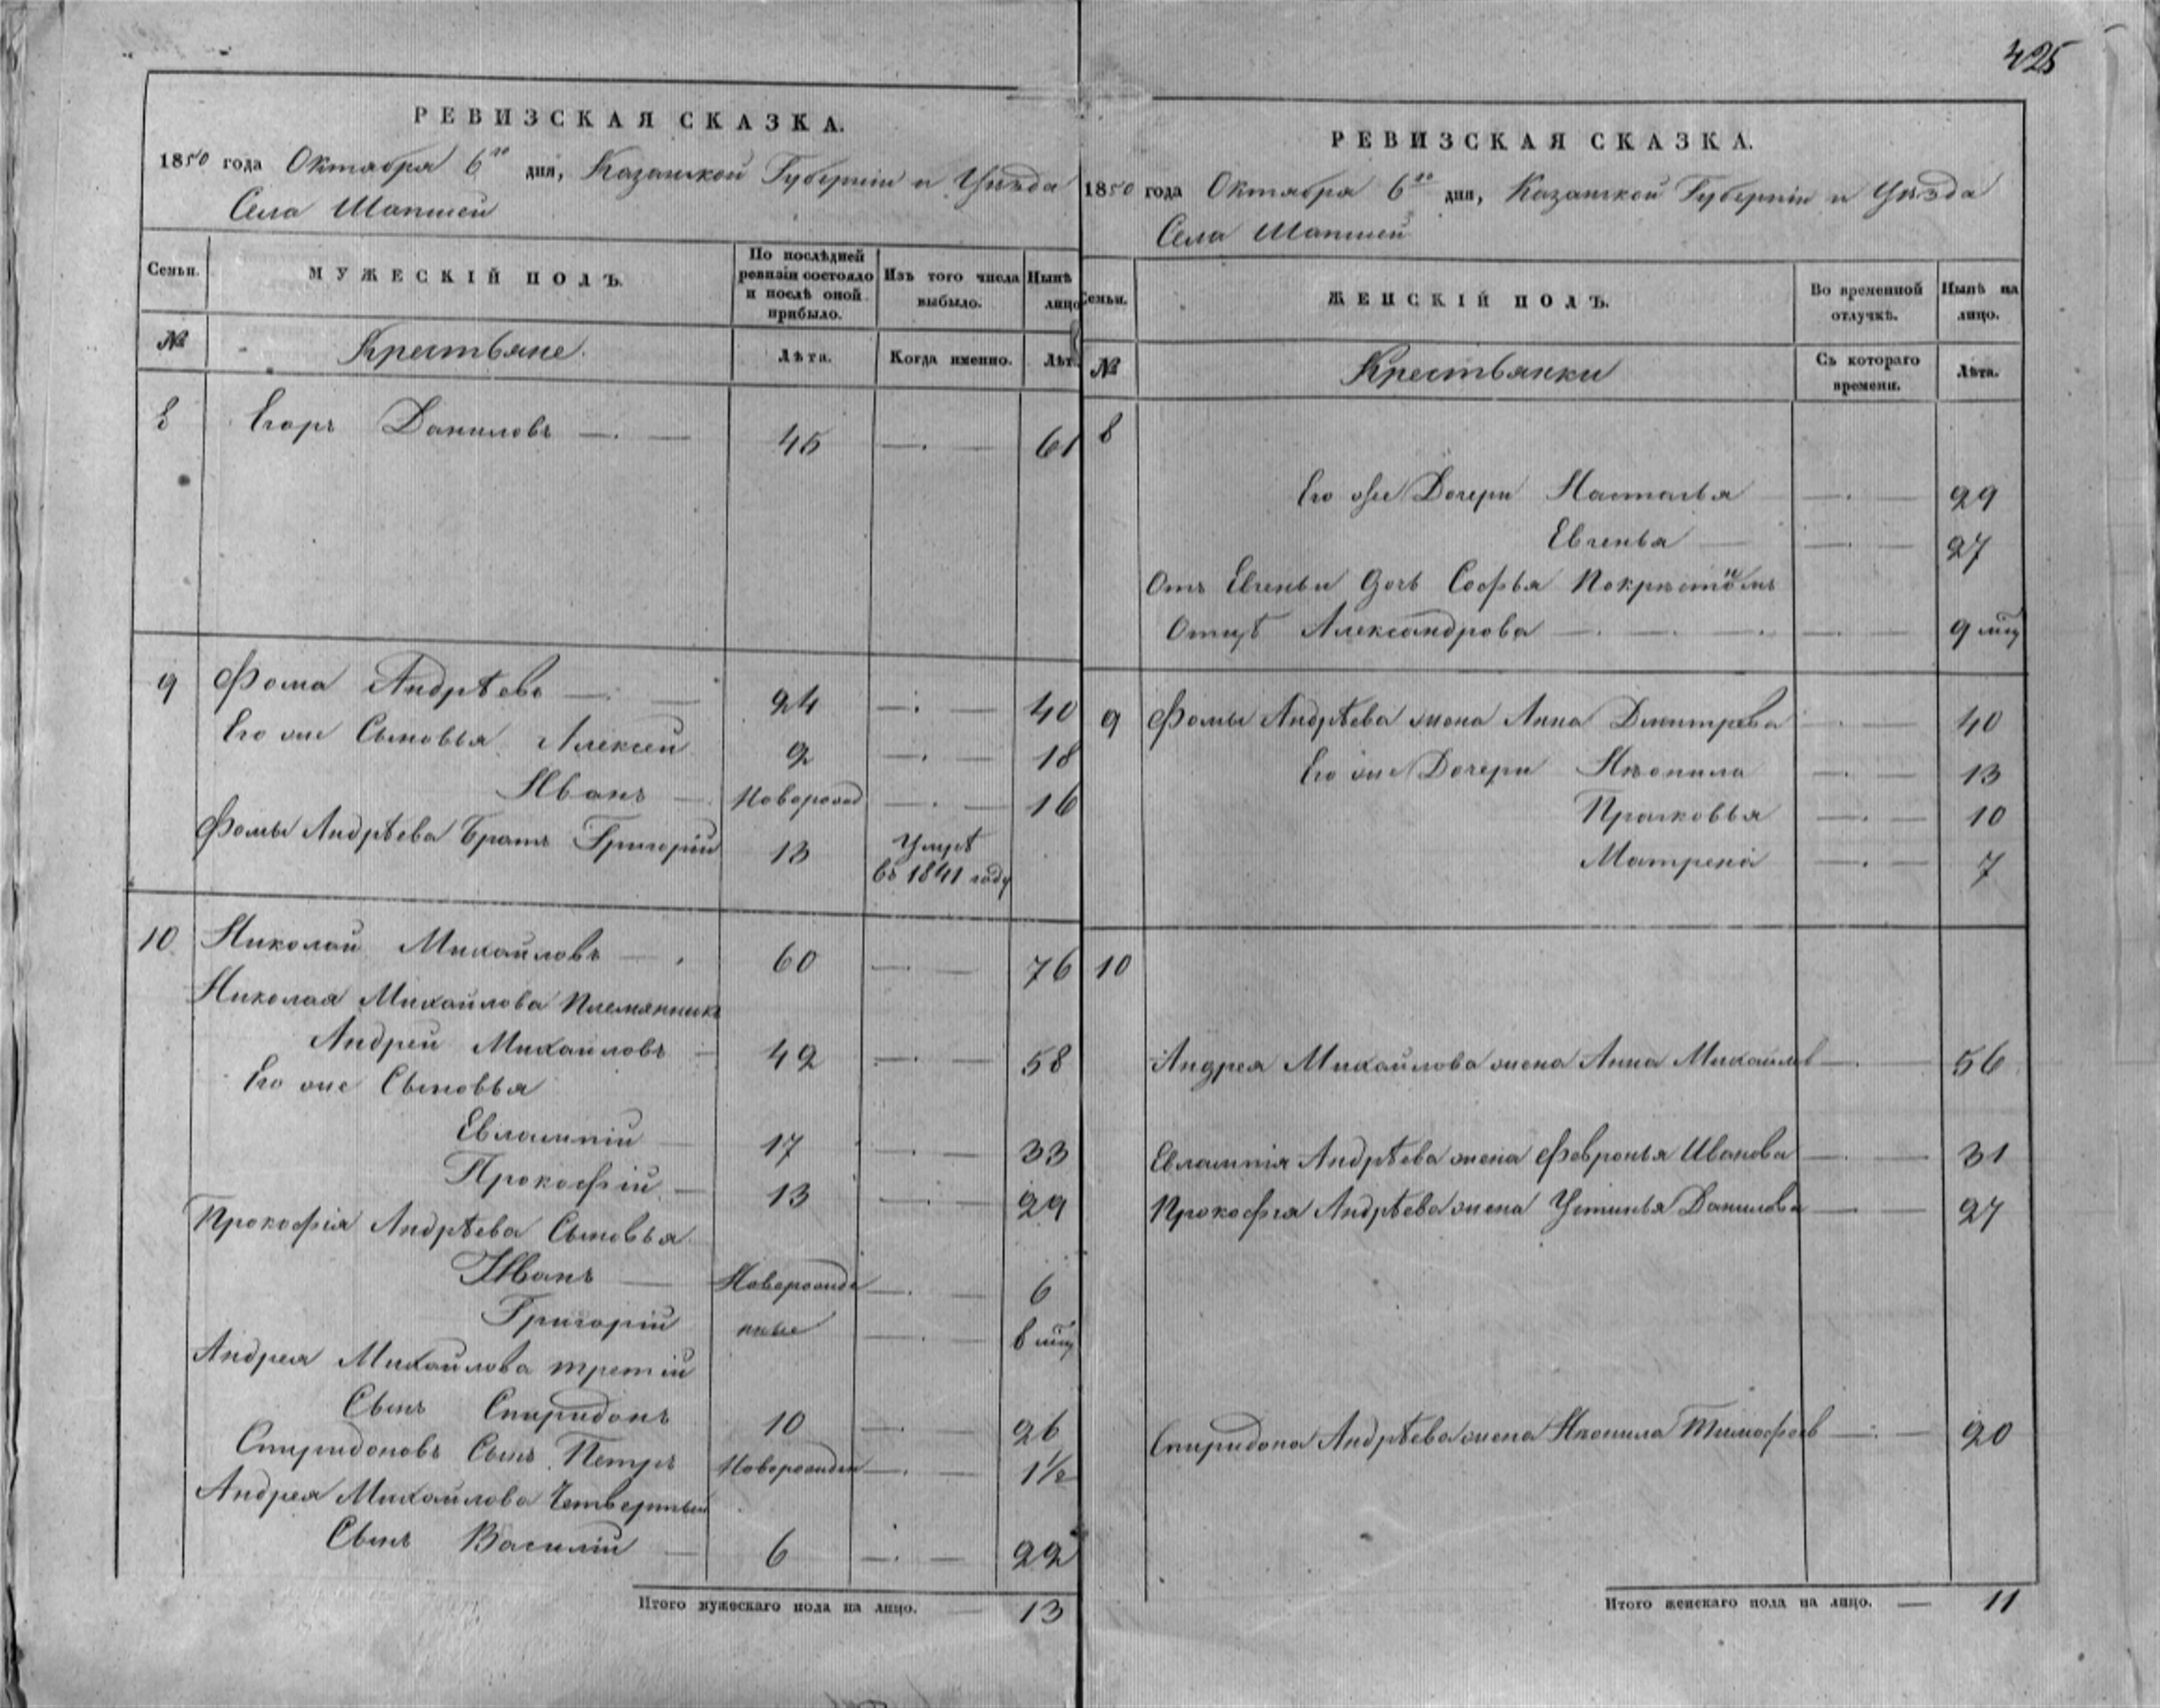 425
РЕВИЗСКАЯ СКАЗКА.
1850 года Октября 6го дня, Казанской Губерніи и Уѣзда
Села Шапшей
Семьи. МУЖЕСКІЙ ПОЛЪ. По послѣдней ревизіи состояло и послѣ оной прибыло. Изъ того числа выбыло. Нынѣ лицо
№ Крестьяне. Лѣта. Когда именно. Лѣт
8 Егоръ Даниловъ — . — 45 — . — 61
9 Фома Андрѣевъ — . — 24 — . — 40
Его же Сыновья Алексей 2 — . — 18
Иванъ —Новорожд — . — 16
Фомы Андрѣева Братъ Григорій 13 Умре
въ 1841 году
10 Николай Михайловъ — . 60 — . — 76
Николая Михайлова Племянникъ
Андрей Михайловъ — 42 — . — 58
Его же Сыновья
Евлампій — 17 — . — 33
Прокофій — 13 — . — 29
Прокофія Андрѣева Сыновья
Иванъ — Новорожде — . — 6
Григорій нные — . — 8 мц
Андрея Михайлова третій
Сынъ Спиридонъ 10 — . — 26
Спиридоновъ Сынъ Петръ Новорожден — . — 1½
Андрея Михайлова Четвертый
Сынъ Василій — 6 — . — 22
Итого мужескаго пола на лицо. — 13
РЕВИЗСКАЯ СКАЗКА.
1850 года Октября 6го дня, Казанской Губерніи и Уѣзда
Села Шапшей
Семьи. ЖЕНСКІЙ ПОЛЪ. Во временной отлучкѣ. Нынѣ на лицо.
№ Крестьянки Съ котораго времени. Лѣта.
8
Его же Дочери Настасья — . — 29
Евгенья — — . — 27
Отъ Евгеньи дочь Софья По
Отцѣ Александрова — . — . — 9 мц
9 Фомы Андрѣева жена Анна Дмитрева — . — 40
Его же Дочери Неонила — . — 13
Прасковья — . — 10
Матрена — . — 7
10
Андрея Михайлова жена Анна Михайлов — . — 56
Евлампія Андрѣева жена Февронья Иванова — . — 31
Прокофія Андрѣева жена Устинья Данилова — . — 27
Спиридона Андрѣева жена Неонила Тимофеев — . — 20
Итого женскаго пола на лицо. — 11